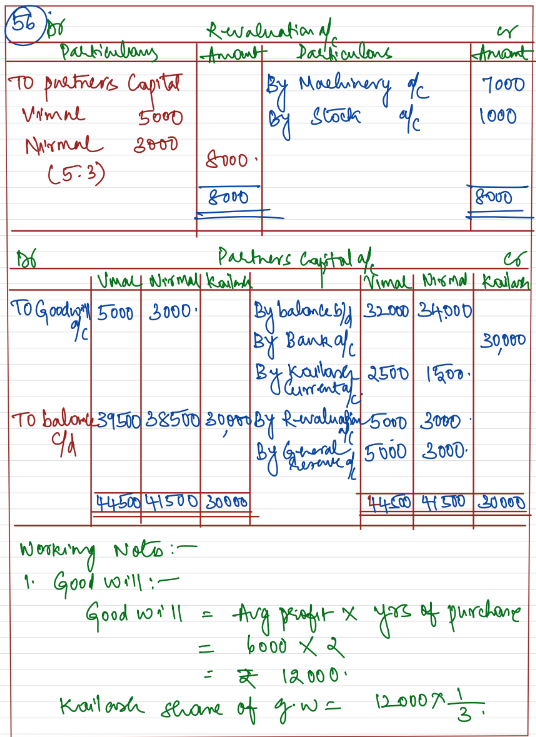 56 Dr Revaluation a/c Cr
Particulars Amount Particulars Amount
To partners Capital By Machinery a/c 7000
Vimal 5000 By Stock a/c 1000
Nirmal 3000
8000.
(5:3)
8000 8000
Dr Partners Capital a/c Cr
Vimal Nirmal Kailash Vimal Nirmal Kailash
To Goodwill a/c 5000 3000. By balance b/d 32000 34000
By Bank a/c 30,000
By Kailash Current a/c 2500 1500.
To balance c/d 39500 38500 30,000 By Revaluation a/c 5000 3000.
By General Reserve a/c 5000 3000.
44500 41500 30000 44500 41500 30000
Working Notes:-
1. Good will:-
Good will = Avg profit x yrs of purchase
= 6000 x 2
= ₹ 12000.
Kailash share of g.w = 12000 x 1/3.